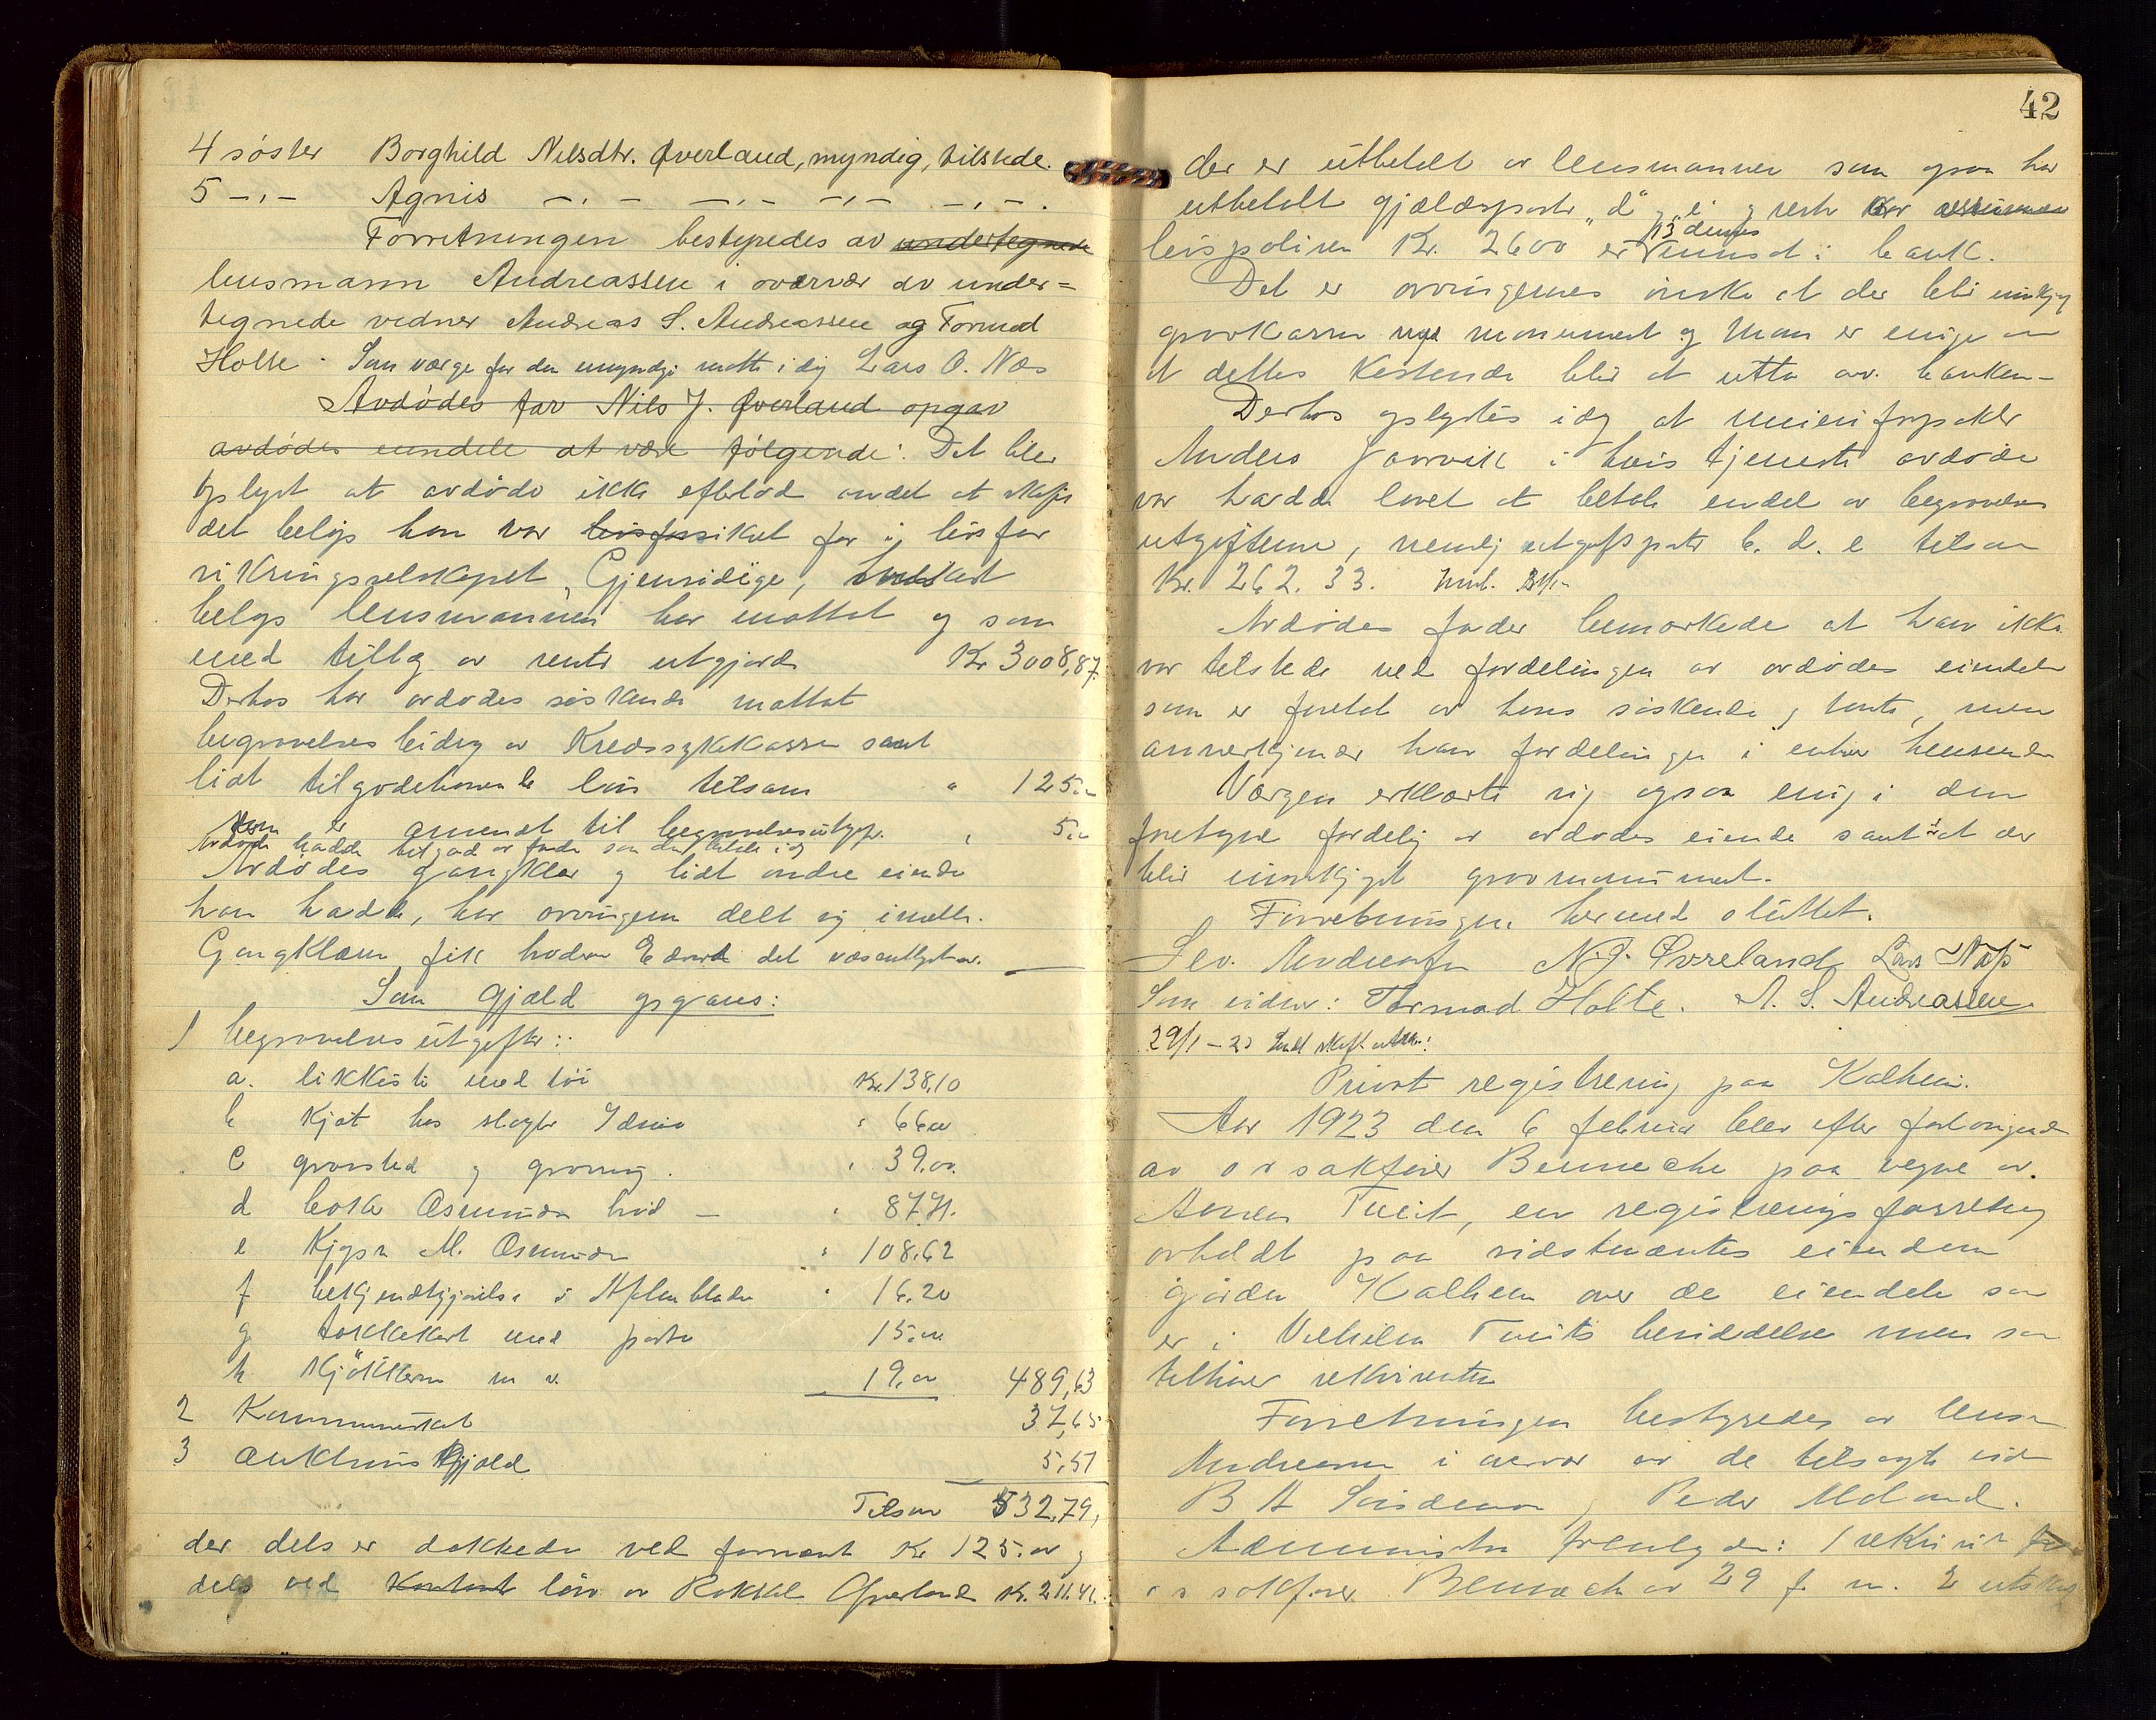 4 søster Borghild Nilsdtr. Øverland, myndig, tilstede.
5 -"- Agnis -"- -"- -"- -"-.
Forretningen bestyredes av undertegnede
lensmann Andreassen i overvær av under=
tegnede vidner Andreas S. Andreassen og Tormod
Holte. Som værge for den umyndige møtte i dag Lars O. Næs
Avdødes far Nils J. Øverland opgav
avdødes eiendele at være følgende: Det blev
oplyst at avdøde ikke efterlod andet at skifte
det beløp han var livsforsikret for i livsfor
sikringsselskapet "Gjensidige", hvilket
beløp lensmannen har mottat og som
med tillæg av renter utgjorde Kr 3008,87.
Derhos har avdødes søskende mottat
begravelsesbidrag av Kredssykekassen samt
lidt tilgodehavende løn tilsam " 125.-
som er anvendt til begravelsesutgifter. " 5.-
Avdøde hadde tilgode av fader som denne betalte i dag
Avdødes gangklær og lidt andre eiende
han hadde, har arvingerne delt sig imellem.
Gangklærne fik broderen Edvard det væsentligste av.
Som gjæld opgaves:
1 begravelsesutgifter:
a. likkiste med tøi Kr. 138,10
b kjøt hos slagter " 66.00
c gravsted og gravning. " 39.00.
d bokh Osmundsen brød - " 87.71.
e Kjøpm M. Osmundsen " 108.62
f bekjendtgjørelse i Aftenbladet " 16.20
g takkekort med porto 15.00
h Kjøkken m v. 19.00 489,63
2 Kommuneskat 37,65
3 auktionsgjæld 5,51
Tilsam 532,79,
der dels er dækkede ved fornævnt Kr 125.00 og
dels ved Kontant lån av Rakkel Øverland Kr. 211.41.
42
der er utbetalt av lensmannen som ogsaa har
utbetalt gjældsposter "d" og "e" og resten av
livspolisen Kr. 2600 er 13 dennes innsat i bank.
Det er arvingernes ønske at der blir innkjøpt
gravkarm med monument og man er enige om
at dettes Kostende blir at utta av banken-
Derhos oplystes i dag at
Anders Jaarvik i hvis tjeneste avdøde
var hadde lovet at betale endel av begravelses
utgifterne, nemlig utgiftsposter b. d. e tilsam
Kr. 262.33.
Avdødes fader bemærkede at han ikke
var tilstede ved fordelingen av avdødes eiendele
som er foretat av hans søskende og tante, men
annerkjender han fordelingen i enhver henseende
Værgen erklærte sig ogsaa enig i den
foretagne fordeling av avdødes eiende samt i at der
blir innkjøpt gravmonument.
Forretningen hermed sluttet.
Sev. Andreassen N. J. Øvreland Lars Næss
Som vidner: Tormod Holte. A. S. Andreassen
29/1 - 23 Sendt skift. utskr.:
Privat registrering paa Kalheim.
Aar 1923 den 6 februar blev efter forlangende
av o r sakfører Benneche paa vegne av
Tveit, en registreringsforretning
avholdt paa sidstnævntes eiendom
gården Kalheim over de eiendele som
er i Vilhelm Tveits besiddelse men som
tilhører rekvirenten
Forretningen bestyredes av lensm
Andreassen i nærvær av de tilsagte vidner
B A og Peder Moland.
Administr fremlagde: 1 rekvisit fra
o r sakfører Bennech av 29 f. m. 2 utskrift